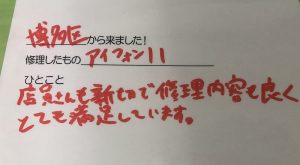 博多区から来ました!
修理したもの アイフォン11
ひとこと
店員さんも親切で修理内容も良く
とても満足しています。